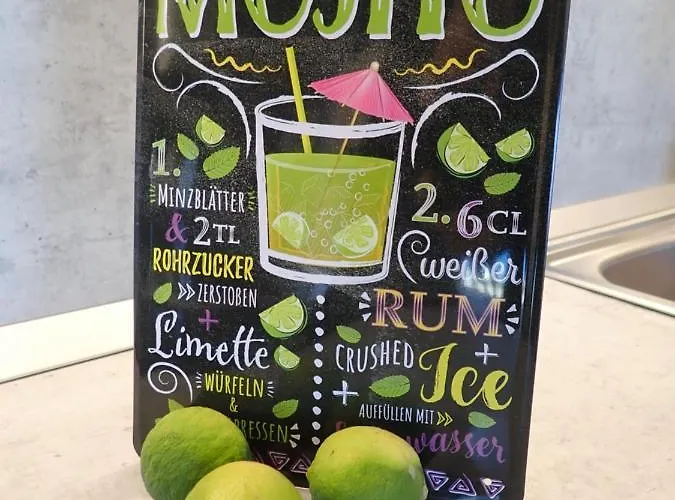 MOJITO
1.
MINZBLÄTTER
& 2TL
ROHRZUCKER
>> ZERSTOßEN
+
Limette
WÜRFELN
&
PRESSEN
2. 6 CL
weißer
RUM
CRUSHED +
+ Ice
AUFFÜLLEN MIT >>
wasser